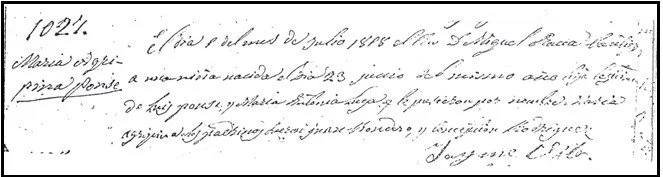 1021.
Maria Agri-
pina Ponse
El dia 8 del mes de Julio 1818 el Sr. D. Miguel
a una niña nacida el dia 23 junio del mismo año hija legitima
de Luis Ponse, y Maria Antonia y le pusieron por nombre Maria
Agripina padrinos fueron Juan y Concepcion Rodriguez
Jayme